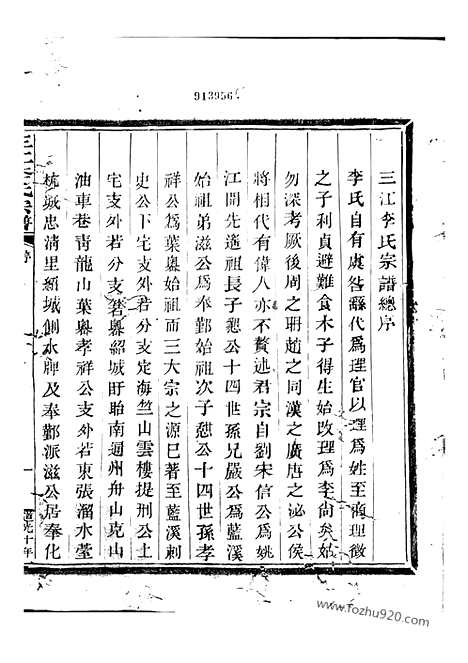 913956
三江李氏宗譜總序
李氏自有虞咎繇代爲理官以理爲姓至商理徵
之子利貞避難食木子得生始改理爲李尙矣姑
勿深考厥後周之珊趙之同漢之廣唐之泌公侯
將相代有偉人亦不贅述君宗自劉宋信公爲姚
江開先遠祖長子懇公十四世孫兄嚴公爲藍溪
始祖弟滋公爲奉鄞始祖次子懟公十四世孫孝
祥公爲葉嶴始祖而三大宗之源已著至藍溪刺
史公下宅支外若分支定海竺山雲樓提刑公上
宅支外若分支箬嶴紹城盱眙南通州舟山克山
油車巷靑龍山葉嶴孝祥公支外若東張溜水堂
杭城忠淸里紹城劍水牌及奉鄞派滋公居奉化
序
一
www.fozhu920.com